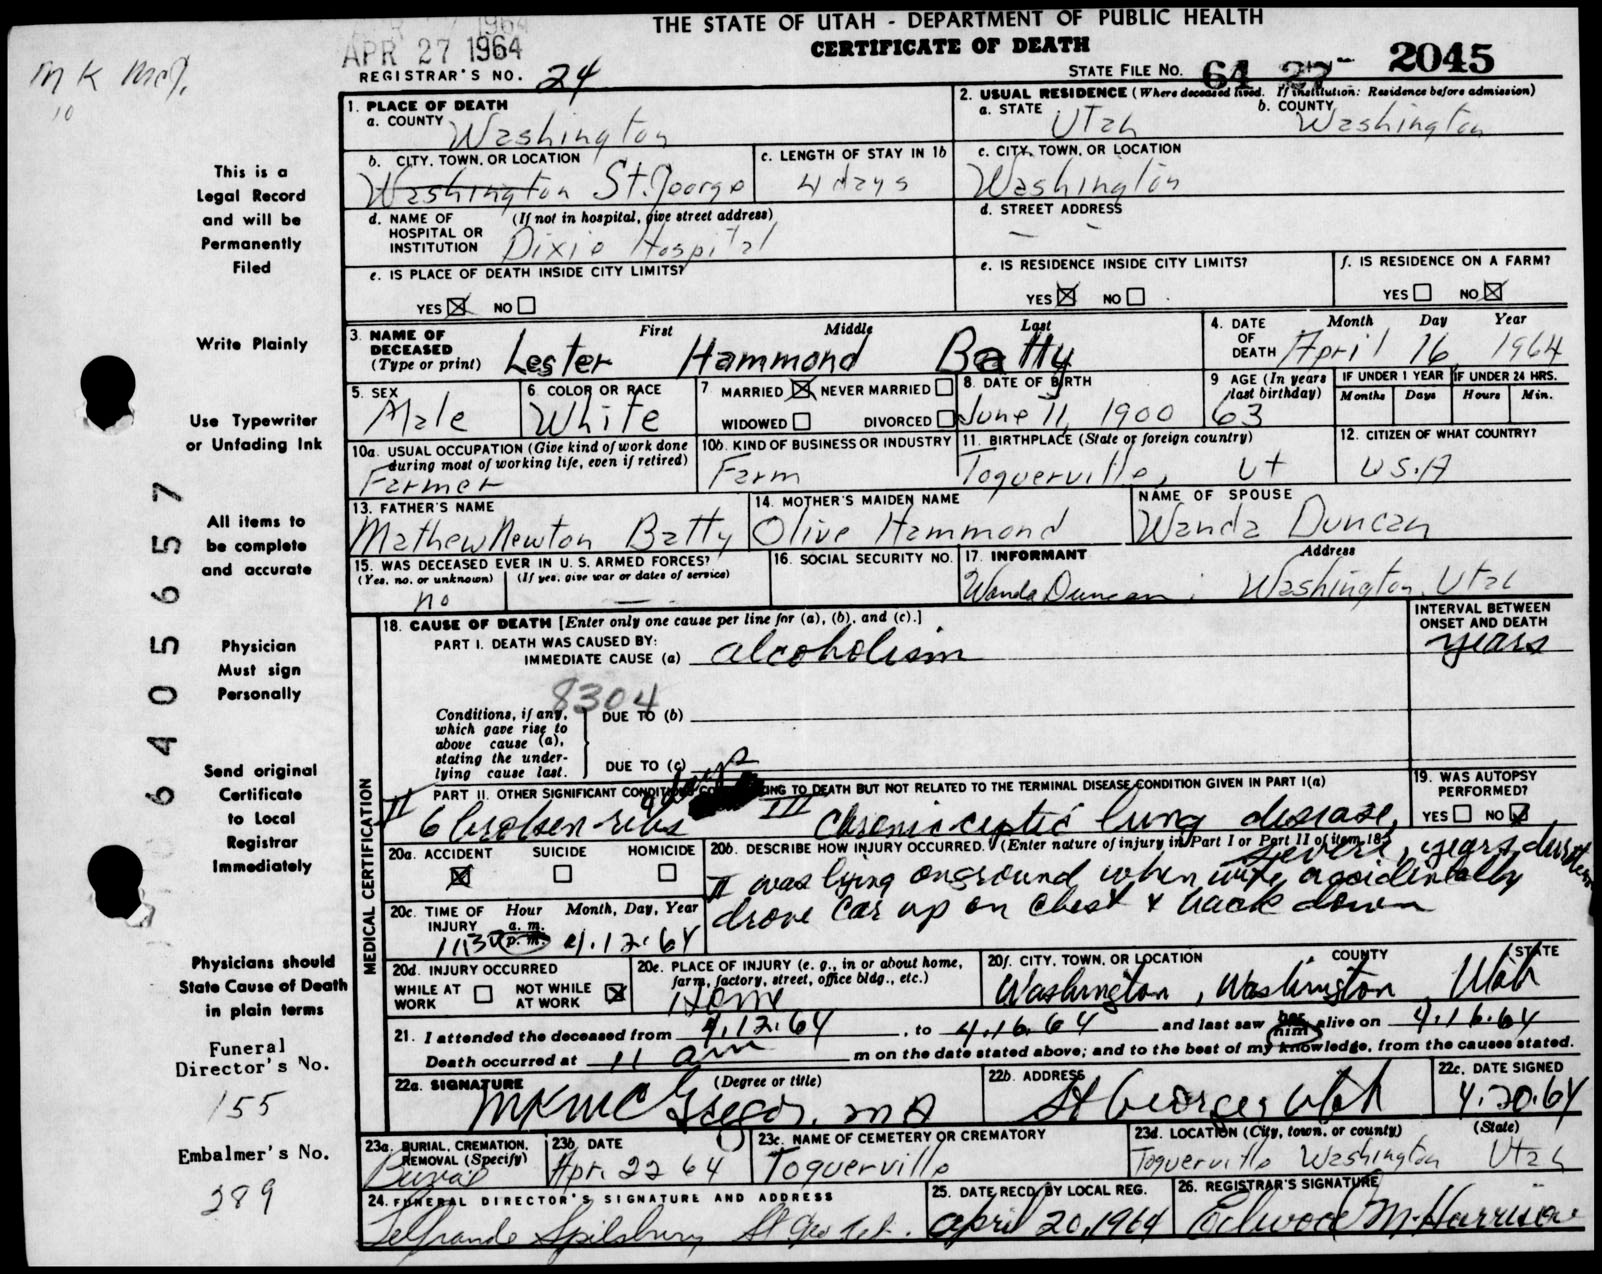 THE STATE OF UTAH - DEPARTMENT OF PUBLIC HEALTH
CERTIFICATE OF DEATH
APR 27 1964
REGISTRAR'S NO. 24
STATE FILE NO. 64 27 2045
M K McG.
10
1. PLACE OF DEATH
a. COUNTY Washington
2. USUAL RESIDENCE (Where deceased lived. If institution: Residence before admission)
a. STATE Utah b. COUNTY Washington
b. CITY, TOWN, OR LOCATION Washington St. George
c. LENGTH OF STAY IN 1b 4 days
c. CITY, TOWN, OR LOCATION Washington
d. NAME OF HOSPITAL OR INSTITUTION (If not in hospital, give street address) Dixie Hospital
d. STREET ADDRESS - -
e. IS PLACE OF DEATH INSIDE CITY LIMITS?
YES ☒ NO ☐
e. IS RESIDENCE INSIDE CITY LIMITS?
YES ☒ NO ☐
f. IS RESIDENCE ON A FARM?
YES ☐ NO ☒
3. NAME OF DECEASED (Type or print) First Middle Last
Lester Hammond Batty
4. DATE OF DEATH Month Day Year
April 16 1964
5. SEX Male
6. COLOR OR RACE White
7 MARRIED ☒ NEVER MARRIED ☐
WIDOWED ☐ DIVORCED ☐
8. DATE OF BIRTH June 11, 1900
9 AGE (In years last birthday) 63
IF UNDER 1 YEAR Months Days
IF UNDER 24 HRS. Hours Min.
10a. USUAL OCCUPATION (Give kind of work done during most of working life, even if retired) Farmer
10b. KIND OF BUSINESS OR INDUSTRY Farm
11. BIRTHPLACE (State or foreign country) Toquerville, Ut
12. CITIZEN OF WHAT COUNTRY? U.S.A
13. FATHER'S NAME Mathew Newton Batty
14. MOTHER'S MAIDEN NAME Olive Hammond
NAME OF SPOUSE Wanda Duncan
15. WAS DECEASED EVER IN U. S. ARMED FORCES?
(Yes, no. or unknown) (If yes, give war or dates of service)
no —
16. SOCIAL SECURITY NO.
17. INFORMANT Address
Wanda Duncan Washington, Utah
18. CAUSE OF DEATH [Enter only one cause per line for (a), (b), and (c).]
INTERVAL BETWEEN ONSET AND DEATH
PART I. DEATH WAS CAUSED BY:
IMMEDIATE CAUSE (a) alcoholism years
8304
Conditions, if any, which gave rise to above cause (a), stating the underlying cause last.
DUE TO (b)
DUE TO (c)
PART II. OTHER SIGNIFICANT CONDITIONS TO DEATH BUT NOT RELATED TO THE TERMINAL DISEASE CONDITION GIVEN IN PART I(a)
II 6 broken ribs days III Chronic septic lung disease, years
19. WAS AUTOPSY PERFORMED?
YES ☐ NO ☒
20a. ACCIDENT SUICIDE HOMICIDE
☒ ☐ ☐
20b. DESCRIBE HOW INJURY OCCURRED. (Enter nature of injury in Part I or Part II of item 18)
II was lying on ground when wife accidentally
drove car up on chest & back down
20c. TIME OF INJURY Hour a. m. p. m. Month, Day, Year
1130 4.12.64
20d. INJURY OCCURRED
WHILE AT WORK ☐ NOT WHILE AT WORK ☒
20e. PLACE OF INJURY (e. g., in or about home, farm, factory, street, office bldg., etc.)
Home
20f. CITY, TOWN, OR LOCATION COUNTY STATE
Washington, Washington Utah
21. I attended the deceased from 4.12.64, to 4.16.64 and last saw her him alive on 4.16.64
Death occurred at 11 am m on the date stated above; and to the best of my knowledge, from the causes stated.
22a. SIGNATURE (Degree or title)
MK McGregor, MD
22b. ADDRESS St George, Utah
22c. DATE SIGNED 4.20.64
23a. BURIAL, CREMATION, REMOVAL (Specify) Burial
23b DATE Apr. 22 64
23c. NAME OF CEMETERY OR CREMATORY Toquerville
23d. LOCATION (City, town, or county) (State)
Toquerville Washington Utah
24. FUNERAL DIRECTOR'S SIGNATURE AND ADDRESS
Spilsbury St Geo Ut.
25. DATE RECD. BY LOCAL REG. April 20, 1964
26. REGISTRAR'S SIGNATURE Edwood M. Harrison
MEDICAL CERTIFICATION
This is a
Legal Record
and will be
Permanently
Filed
Write Plainly
Use Typewriter
or Unfading Ink
All items to
be complete
and accurate
Physician
Must sign
Personally
Send original
Certificate
to Local
Registrar
Immediately
Physicians should
State Cause of Death
in plain terms
Funeral
Director's No.
155
Embalmer's No.
289
64056 57